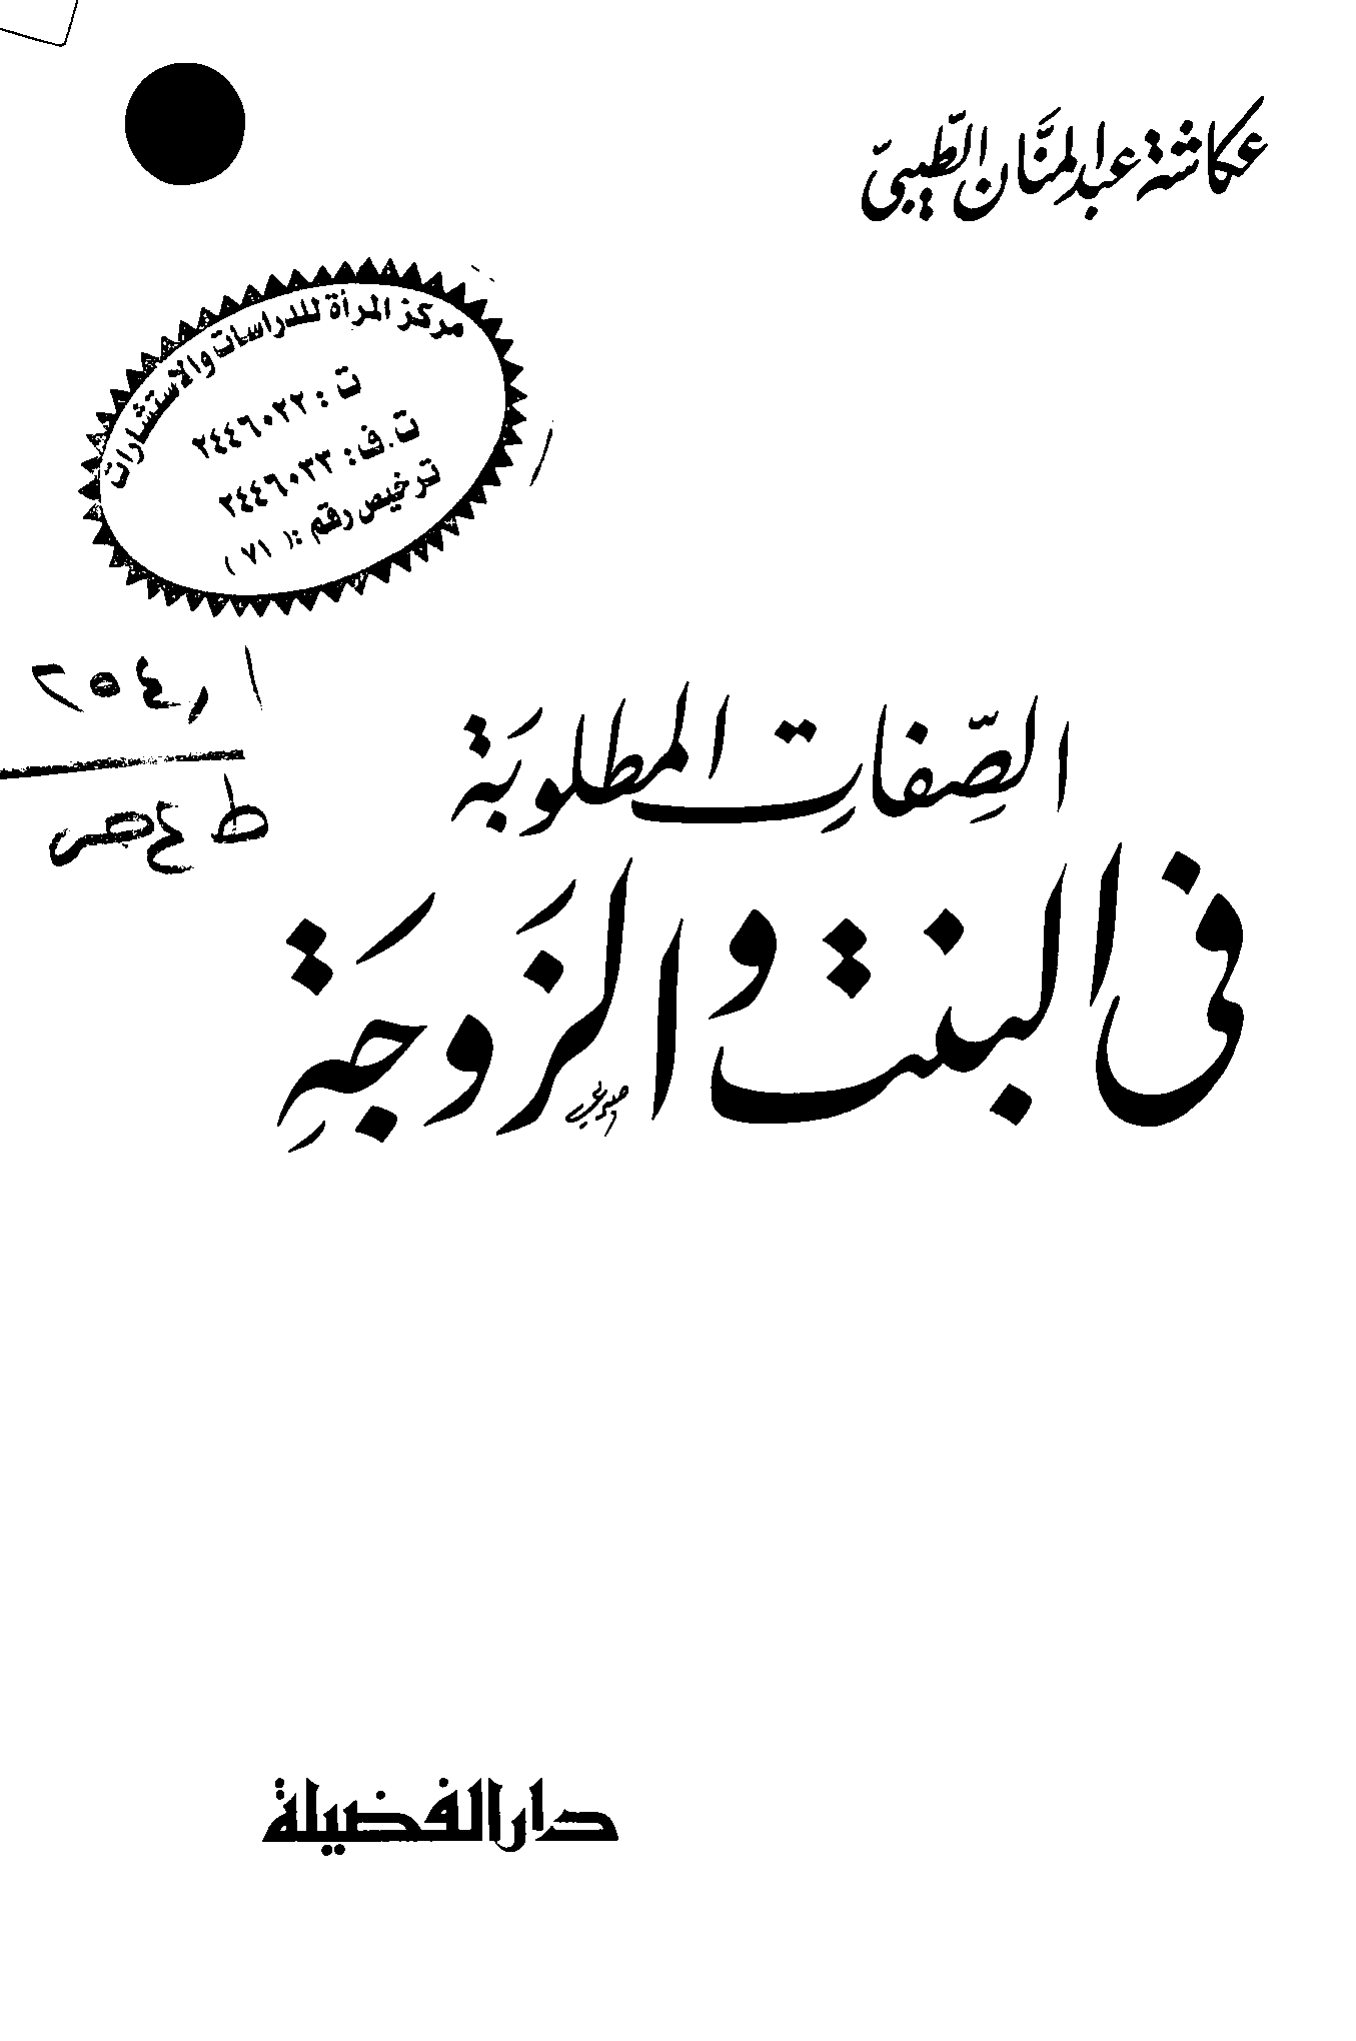 عكاشة عبدالمنَّان الطّيبىّ
مركز المرأة للدراسات والاستشارات
ت : ٢٤٤٦٠٢٢
ت.ف: ٢٤٤٦٠٣٣
ترخيص رقم :( ٧١ )
٢٥٤ر١
ط ع ص
الصِّفاتِ المطلوبَة
فى البنت والزَوجَةِ
دار الفضيلة